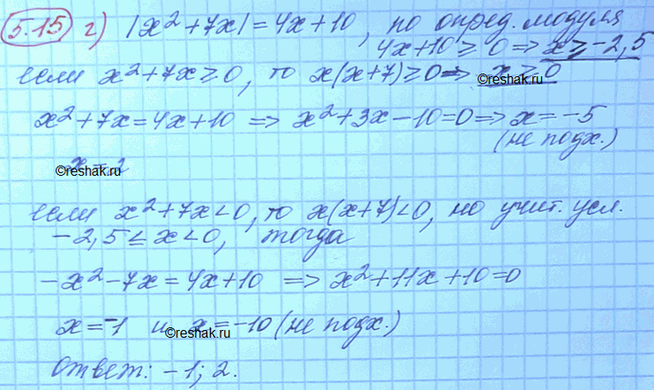 5.15 г) |x²+7x| = 4x+10, по опред. модуля
4x+10 ≥ 0 ⇒ x ≥ -2,5
если x²+7x ≥ 0, то x(x+7) ≥ 0 ⇒ x ≥ 0
©reshak.ru
x²+7x = 4x+10 ⇒ x²+3x-10=0 ⇒ x = -5
(не подх.)
x = 2
©reshak.ru
если x²+7x < 0, то x(x+7) < 0, но учит. усл.
-2,5 ≤ x < 0, тогда
-x²-7x = 4x+10 ⇒ x²+11x+10=0
x = -1 и x = -10 (не подх.)
©reshak.ru
Ответ: -1; 2.